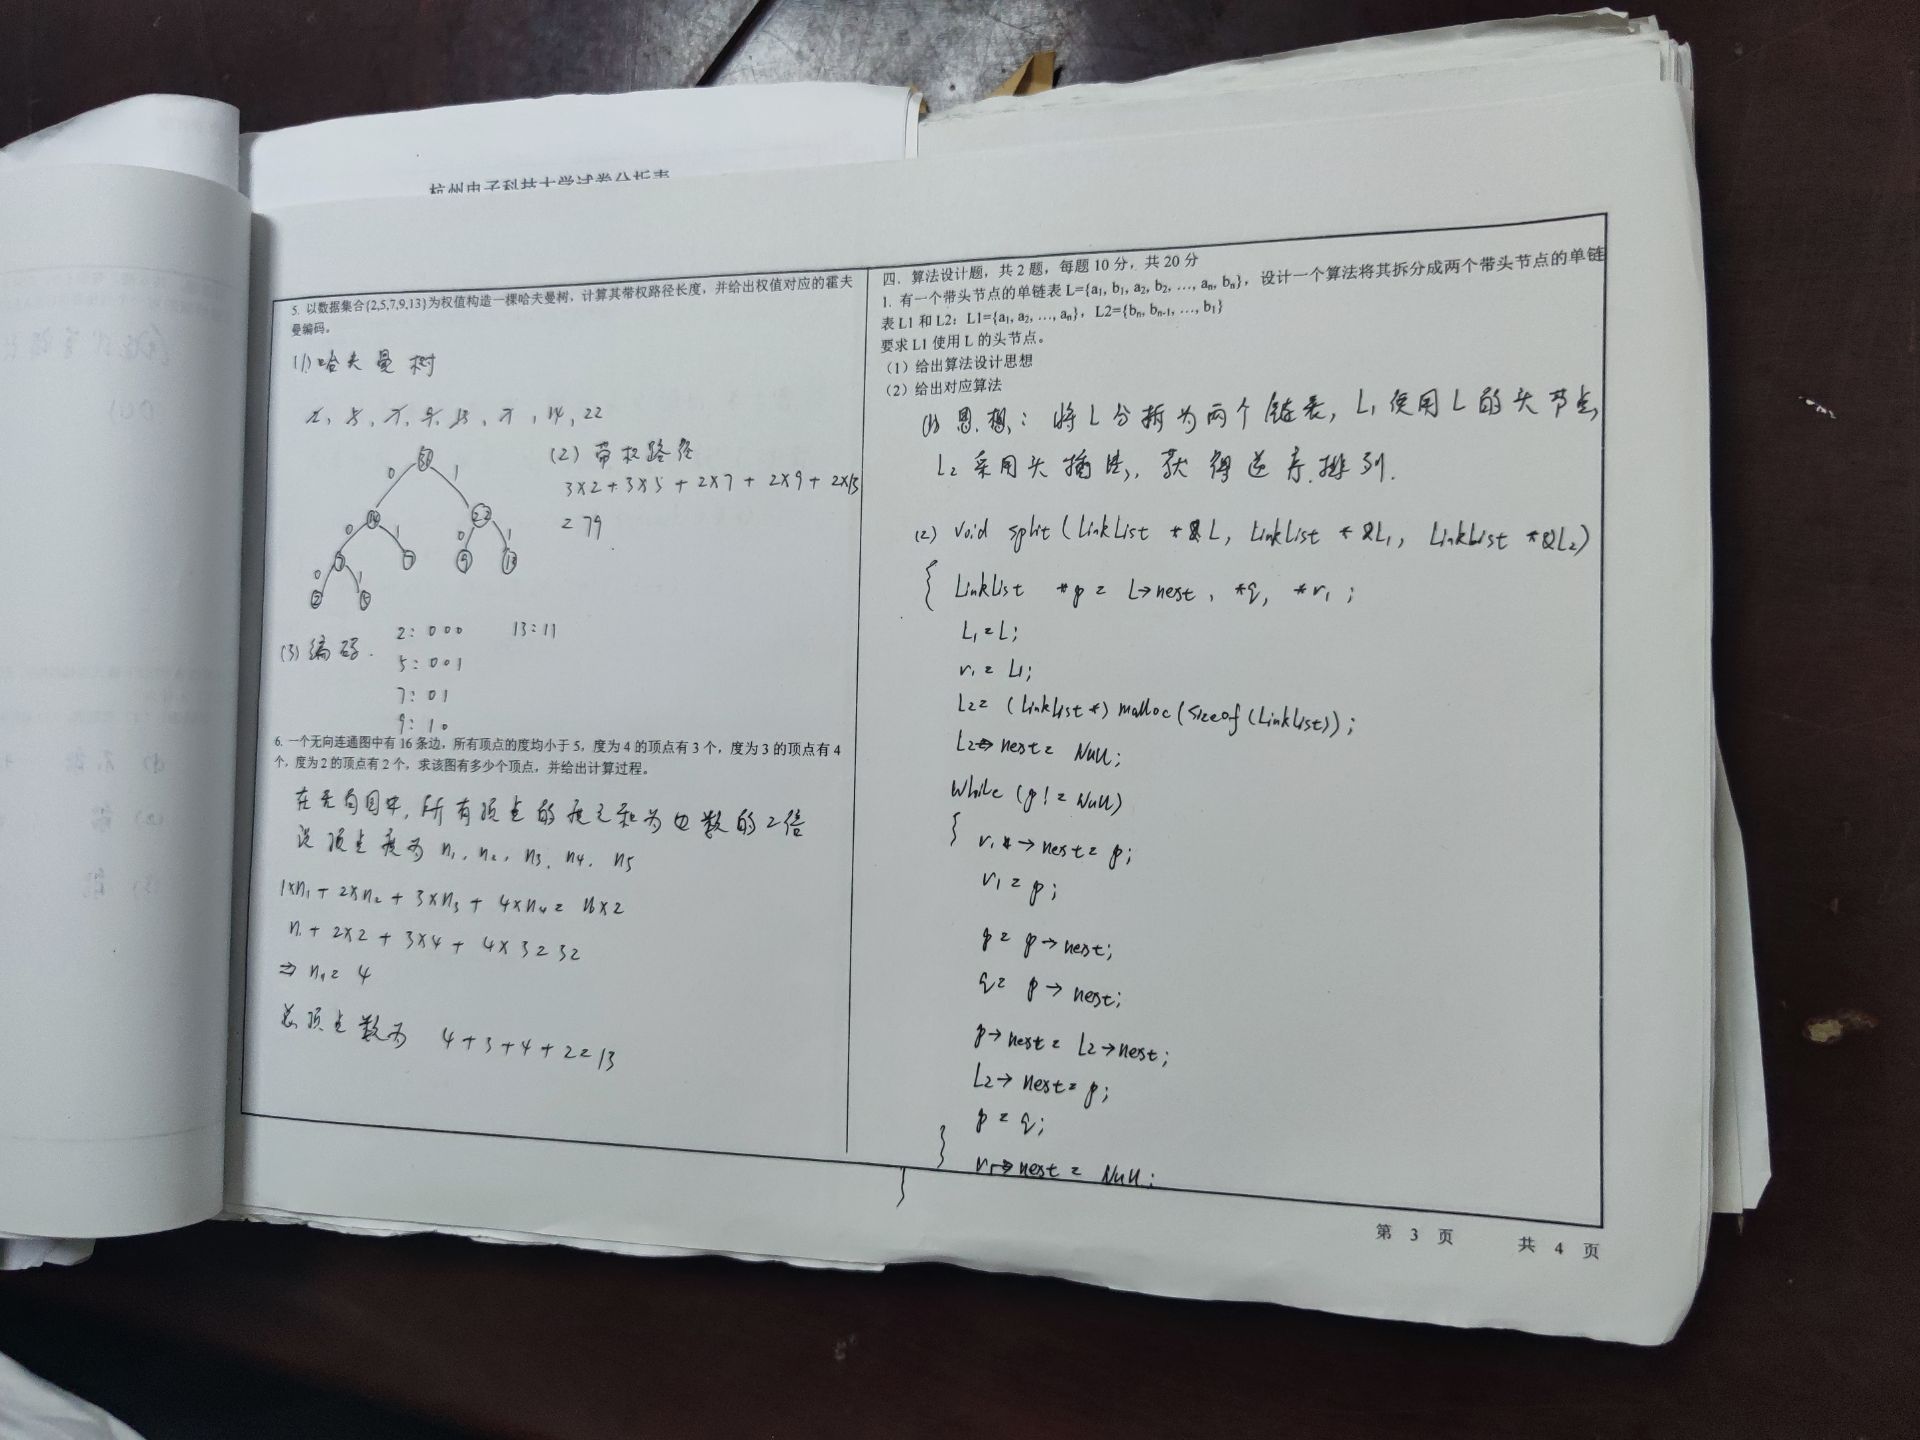 杭州电子科技大学试卷分析表
5. 以数据集合{2,5,7,9,13}为权值构造一棵哈夫曼树，计算其带权路径长度，并给出权值对应的霍夫
曼编码。
(1)哈夫曼树
2, 5, 7, 9, 13, 7, 14, 22
(2) 带权路径
3×2+3×5+2×7+2×9+2×13
=79
0 1
14 22
0 1 0 1
7 7 9 13
0 1
2 5
(3)编码.
2: 000 13:11
5: 001
7: 01
9: 10
6. 一个无向连通图中有 16 条边，所有顶点的度均小于 5，度为 4 的顶点有 3 个，度为 3 的顶点有 4
个，度为 2 的顶点有 2 个，求该图有多少个顶点，并给出计算过程。
在无向图中,所有顶点的度之和为边数的2倍
设顶点度为 n1, n2, n3, n4, n5
1×n1+2×n2+3×n3+4×n4=16×2
n1+2×2+3×4+4×3=32
⇒ n1=4
总顶点数为 4+3+4+2=13
四. 算法设计题，共 2 题，每题 10 分，共 20 分
1. 有一个带头节点的单链表 L={a1, b1, a2, b2, …, an, bn}，设计一个算法将其拆分成两个带头节点的单链
表 L1 和 L2：L1={a1, a2, …, an}，L2={bn, bn-1, …, b1}
要求 L1 使用 L 的头节点。
（1）给出算法设计思想
（2）给出对应算法
(1) 思想：将L分拆为两个链表, L1使用L的头节点,
L2采用头插法, 获得逆序排列.
(2) void split(LinkList *&L, LinkList *&L1, LinkList *&L2)
{ LinkList *p = L→next, *q, *r1;
L1=L;
r1=L1;
L2= (LinkList*) malloc(sizeof(LinkList));
L2→next= Null;
While (p!=Null)
{ r1→next=p;
r1=p;
p= p→next;
q= p→next;
p→next= L2→next;
L2→next=p;
p=q;
} r1→next= Null;
}
第 3 页 共 4 页